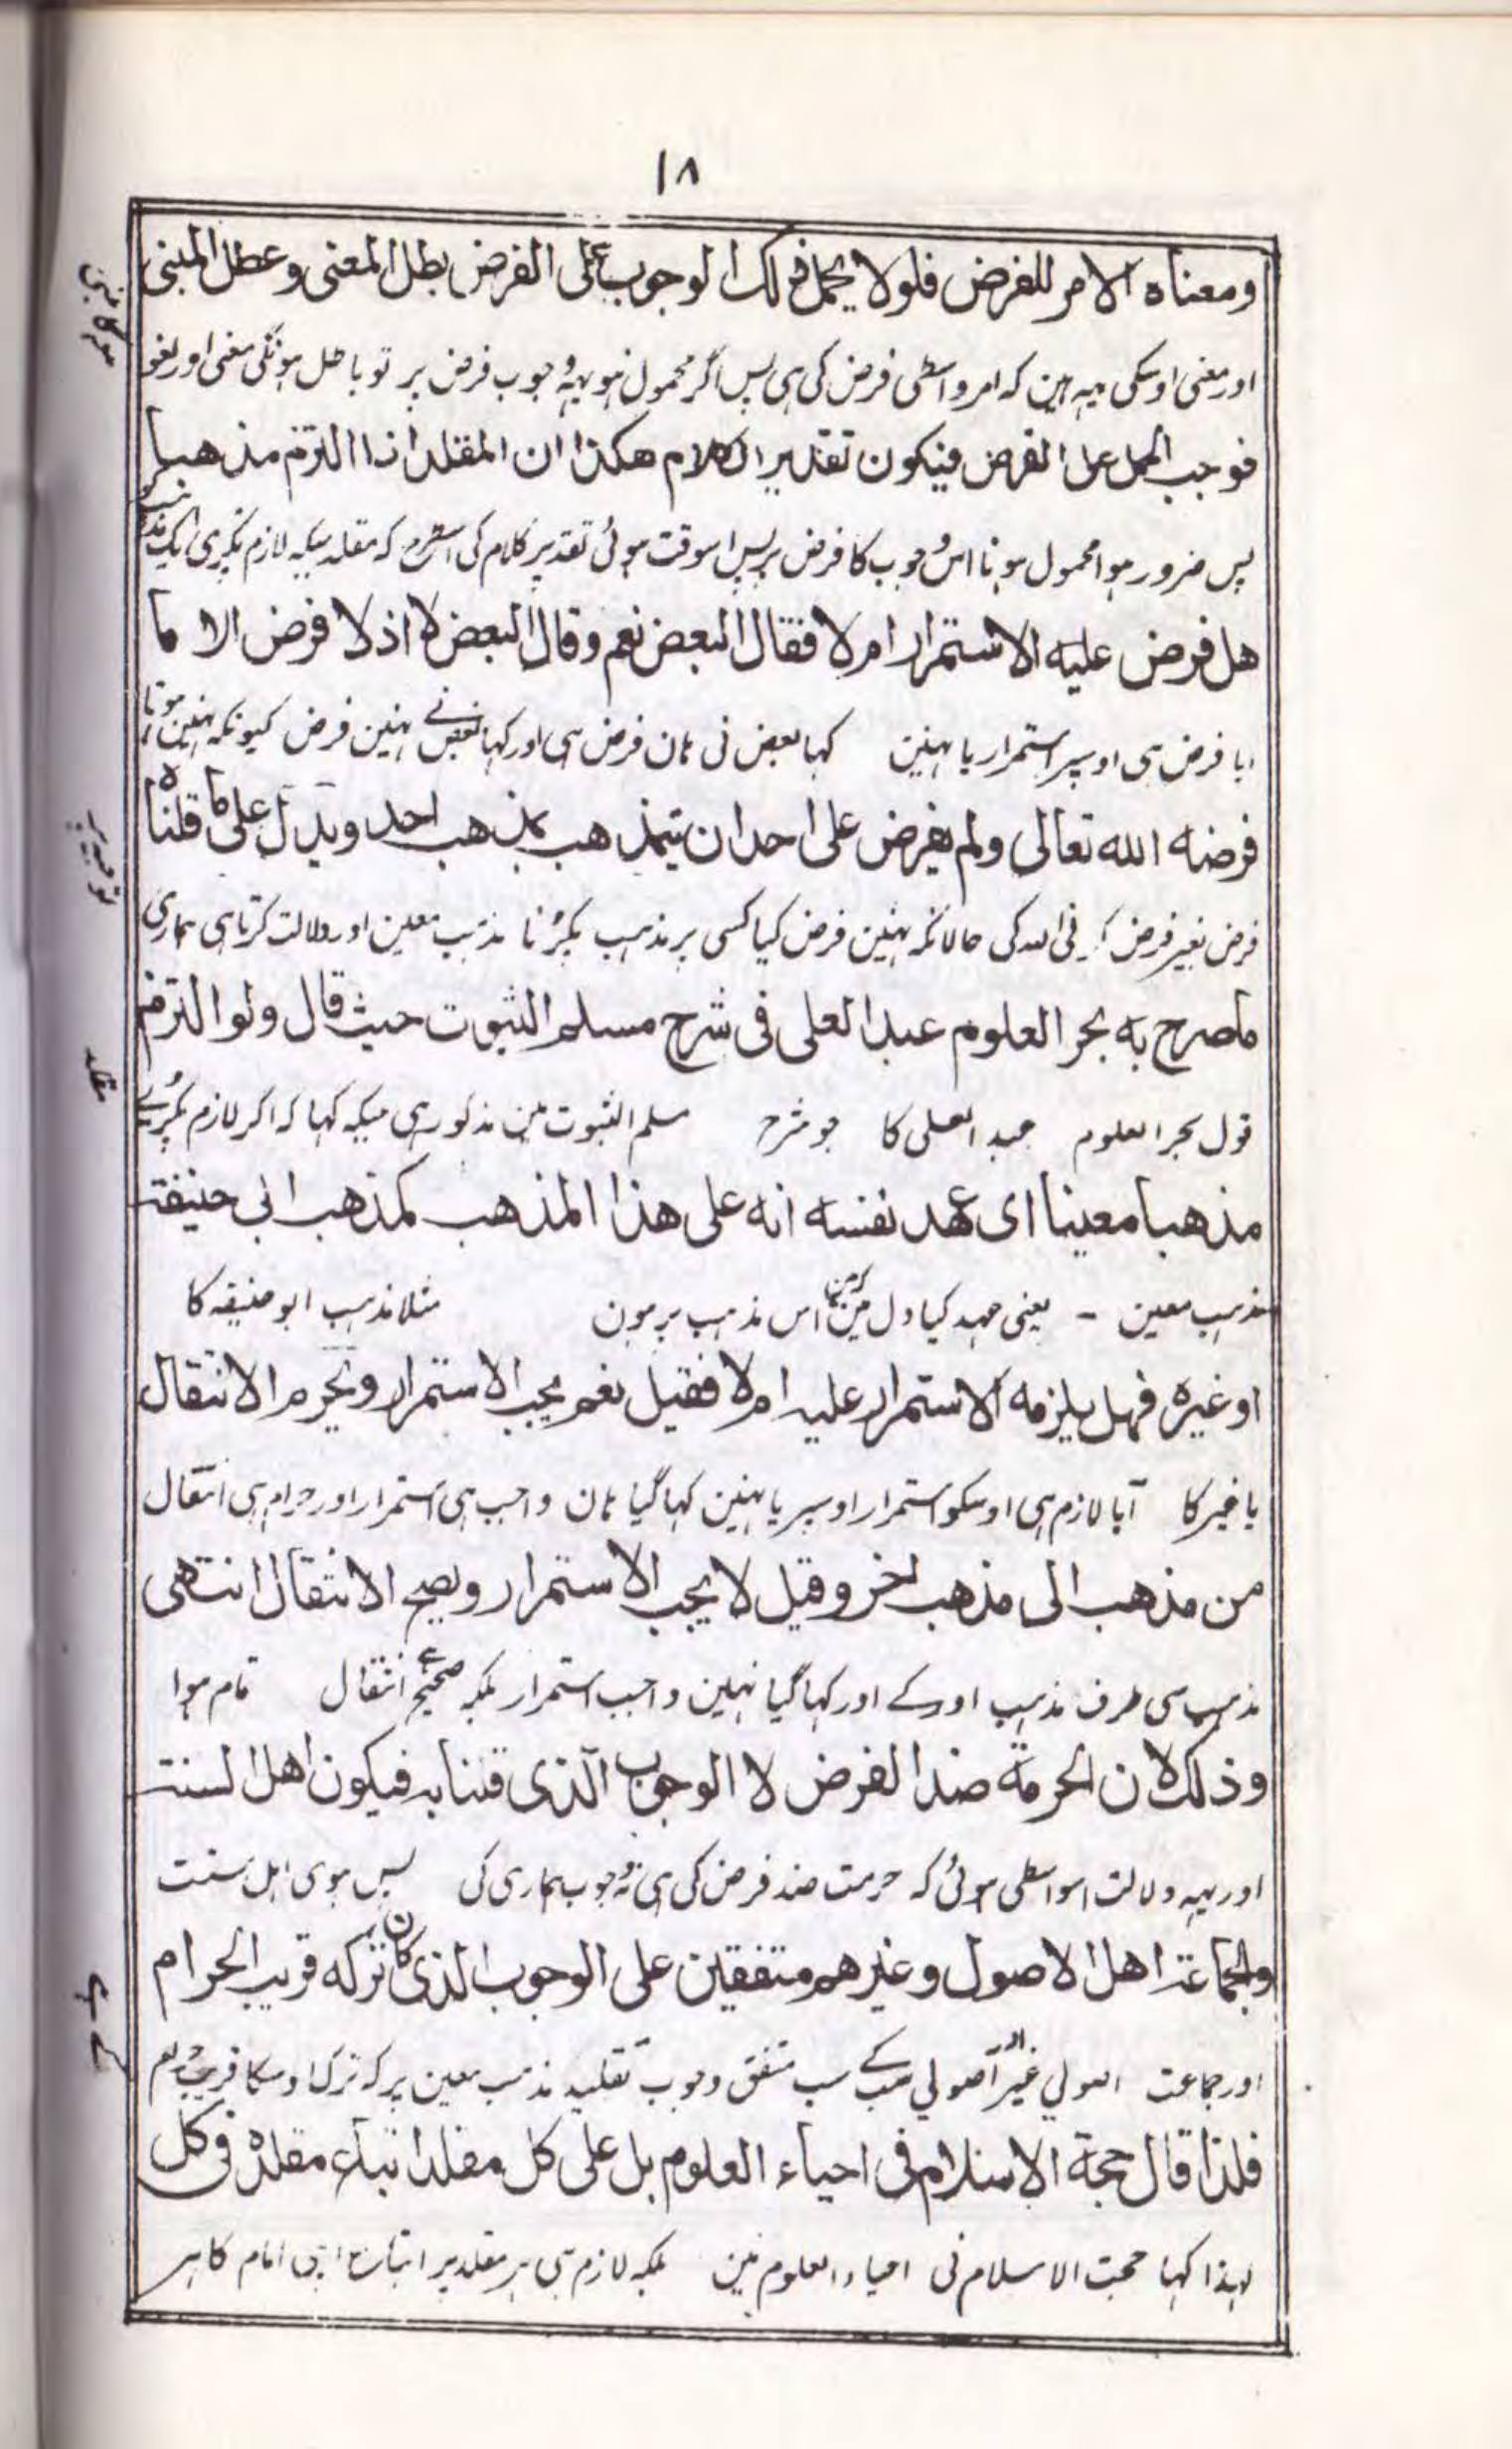 ١٨
ومعناه الامر للفرض فلولا يحمل ذلك الوجوب على الفرض بطل المعنى وعطل المبنى
اور معنی اوسکی یہہ ہین کہ امر واسطی فرض کی ہی پس اگر محمول نہو یہہ وجوب فرض پر تو باطل ہونگی معنی اور لغو
فوجب الحمل على الفرض فيكون تقدير الكلام هكذا ان المقلد اذا التزم مذهبا
پس ضرور ہوا محمول ہونا اس وجوب کا فرض پر پس اسوقت ہوئی تقدیر کلام کی اسطرح کہ مقلد جبکہ لازم پکڑی ایک مذہب
هل فرض عليه الاستمرار ام لا فقال البعض نعم وقال البعض لا اذ لا فرض الا ما
ایا فرض ہی اوسپر استمرار یا نہین کہا بعض نی ہان فرض ہی اور کہا بعض نے نہین فرض کیونکہ نہین ہوتا
فرضه الله تعالى ولم يفرض على احد ان يتمذهب بمذهب احد ويدل على ما قلناه
فرض بغیر فرض کرنی اللہ کی حالانکہ نہین فرض کیا کسی پر مذہب پکڑنا مذہب معین اور دلالت کرتا ہی ہماری
ما صرح به بحر العلوم عبد العلى فى شرح مسلم الثبوت حيث قال ولو التزم
قول بحر العلوم عبد العلی کا جو شرح مسلم الثبوت مین مذکور ہی جبکہ کہا کہ اگر لازم پکڑے
مذهبا معينا اى عهد نفسه انه على هذا المذهب كمذهب ابى حنيفة
مذہب معین - یعنی عہد کیا دل مین کہ مین اس مذہب پر ہون مثلا مذہب ابو حنیفہ کا
او غيره فهل يلزمه الاستمرار عليه ام لا فقيل نعم يجب الاستمرار ويحرم الانتقال
یا غیر کا آیا لازم ہی اوسکو استمرار اوسپر یا نہین کہا گیا ہان واجب ہی استمرار اور حرام ہی انتقال
من مذهب الى مذهب اخر وقيل لا يجب الاستمرار ويصح الانتقال انتهى
مذہب سی طرف مذہب اور کے اور کہا گیا نہین واجب استمرار بلکہ صحیح ہے انتقال تمام ہوا
وذلك لان الحرمة ضد الفرض لا الوجوب الذى قلنا به فيكون اهل السنة
اور یہہ دلالت اسواسطی ہوئی کہ حرمت ضد فرض کی ہی نہ وجوب ہماری کی پس ہوی اہل سنت
والجماعة اهل الاصول وغيرهم متفقين على الوجوب الذى كان تركه قريب الحرام
اور جماعت اصولی اور غیر اصولی سب کے سب متفق وجوب تقلید مذہب معین پر کہ ترک اوسکا قریب حرام
فلذا قال حجة الاسلام فى احياء العلوم بل على كل مقلد اتباع مقلده فى كل
لہذا کہا حجت الاسلام نی احیاء العلوم مین بلکہ لازم ہی ہر مقلد پر اتباع اپنی امام کا ہر
توحید پر
مقلد
کے ہے